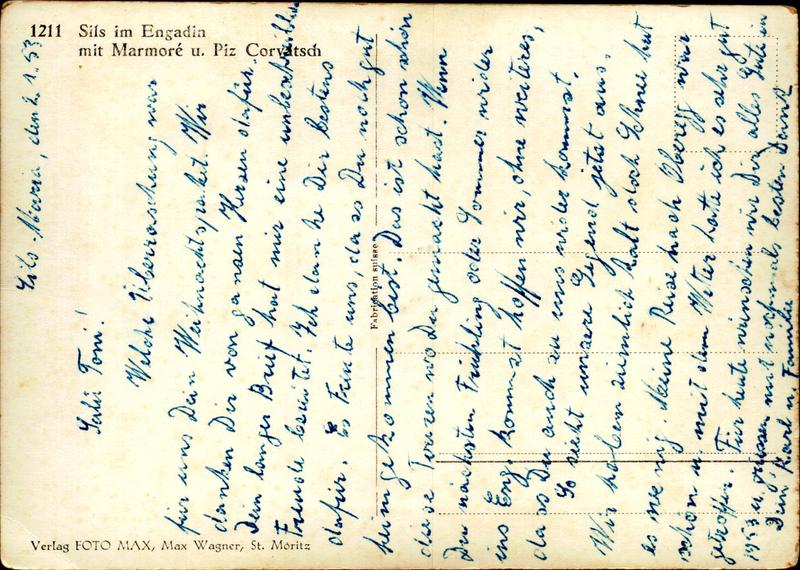 1211 Sils im Engadin
mit Marmoré u. Piz Corvatsch
Sils-Maria, den 2.1.53
Salü Toni!
Welche Überraschung war
für uns Dein Weihnachtspaket. Wir
danken Dir von ganzen Herzen dafür.
Dein langer Brief hat mir eine unbeschreibliche
Freude bereitet. Ich danke Dir bestens
dafür. Es freute uns, dass Du noch gut
heimgekommen bist. Das ist schon schön
diese Touren wo Du gemacht hast. Wenn
Du nächsten Frühling oder Sommer wider
ins Eng. kommst hoffen wir, ohne weiteres,
dass Du auch zu uns wider kommst.
So sieht unsere Gegend jetzt aus.
Wir haben zimmlich kalt doch Schnee hat
es wenig. Meine Reise nach Oberegg war
schön u. mit dem Weter hate ich es sehr gut
getroffen. Für heute wünschen wir Dir alles Gute in
1953 u. grüssen mit nochmals besten Dank
Dein Karl u. Familie
Fabrication suisse
Verlag FOTO MAX, Max Wagner, St. Moritz